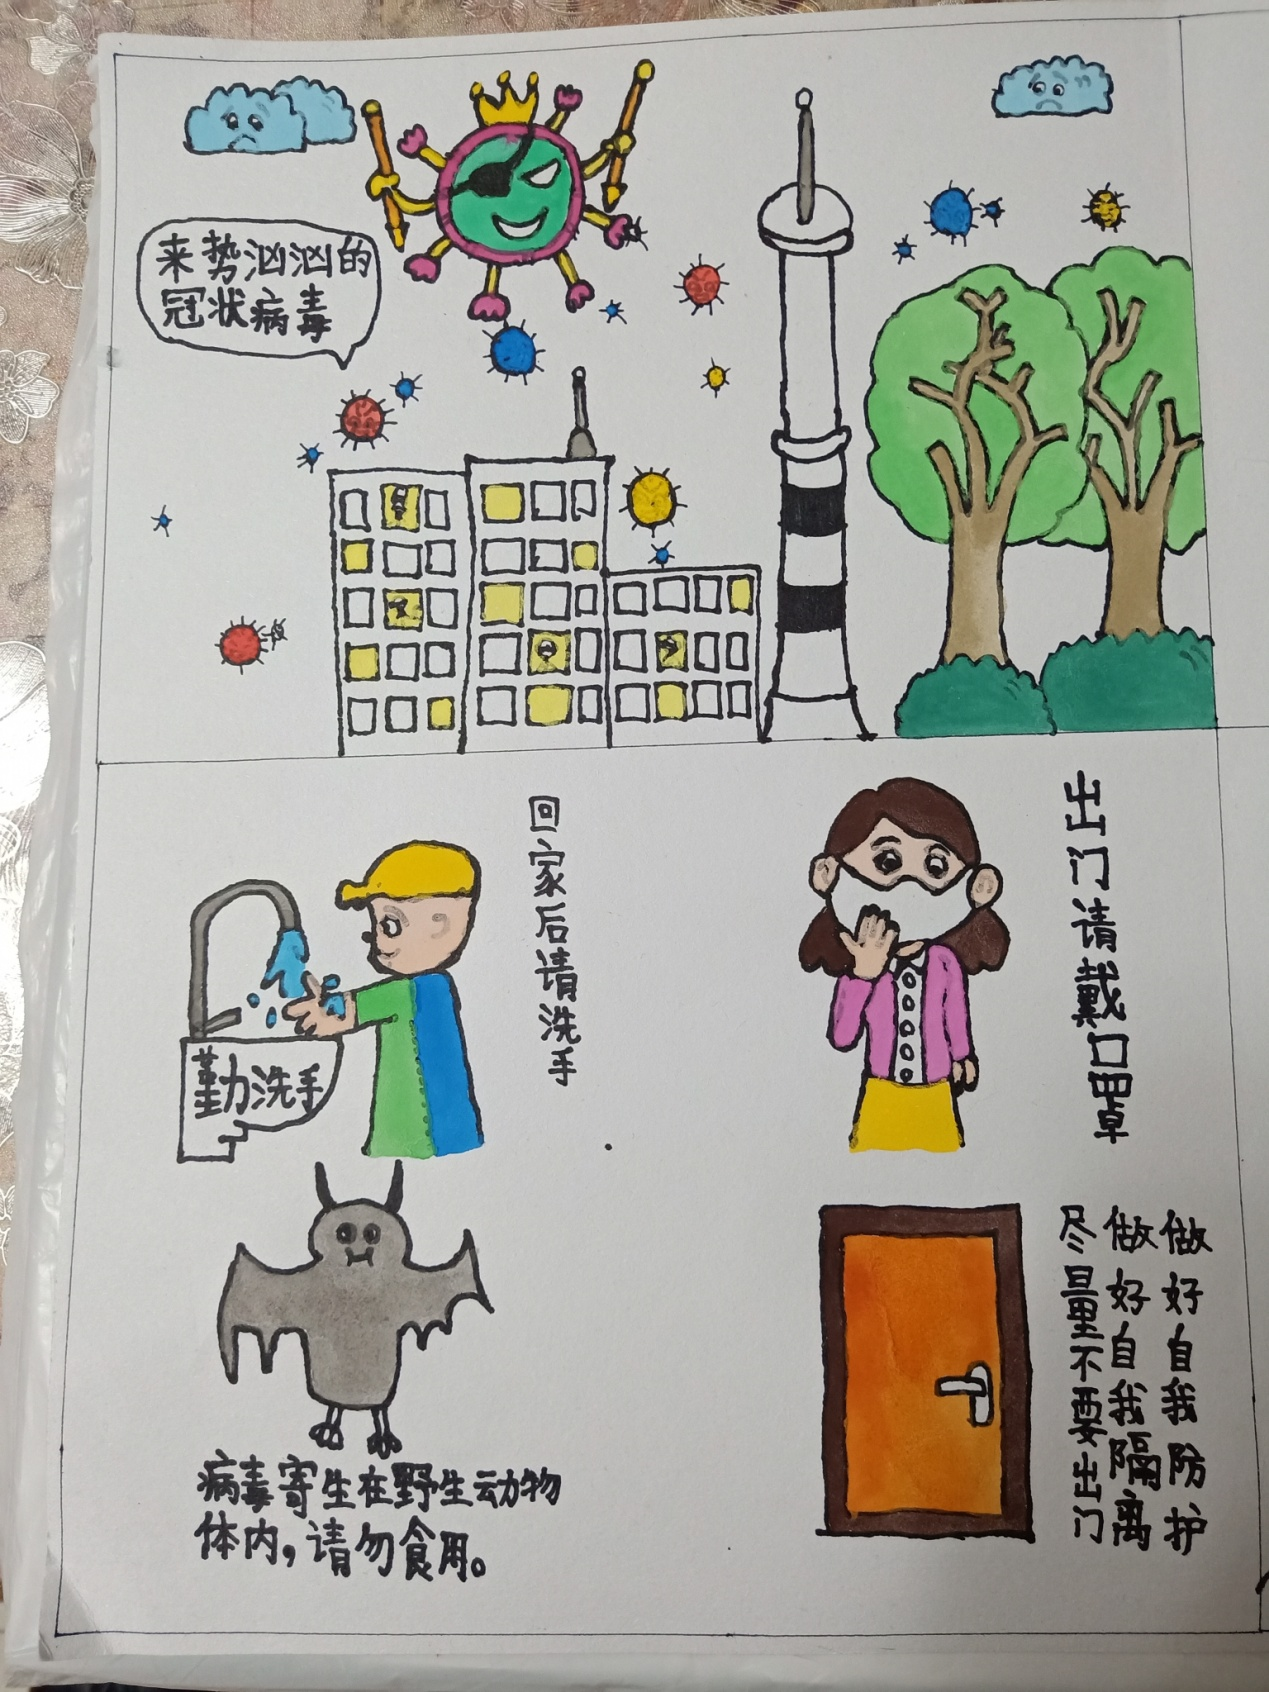 来势汹汹的
冠状病毒
回家后请洗手
勤洗手
出门请戴口罩
病毒寄生在野生动物
体内，请勿食用。
做好自我防护
做好自我隔离
尽量不要出门